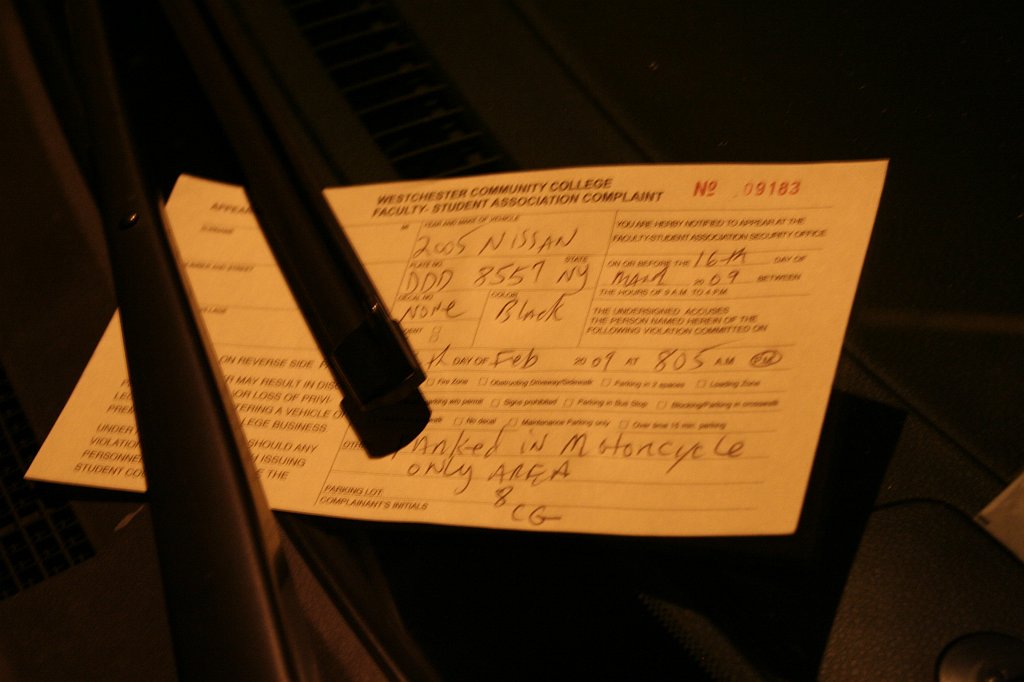 WESTCHESTER COMMUNITY COLLEGE
FACULTY- STUDENT ASSOCIATION COMPLAINT
Nº 09183
YEAR AND MAKE OF VEHICLE
2005 NISSAN
PLATE NO. STATE
DDD 8557 NY
DECAL NO. COLOR
None Black
YOU ARE HERBY NOTIFIED TO APPEAR AT THE
FACULTY-STUDENT ASSOCIATION SECURITY OFFICE
ON OR BEFORE THE 16th DAY OF
March 2009 BETWEEN
THE HOURS OF 9 A.M. TO 4 P.M.
THE UNDERSIGNED ACCUSES
THE PERSON NAMED HEREIN OF THE
FOLLOWING VIOLATION COMMITTED ON
th DAY OF Feb 2009 AT 805 A.M. PM
Fire Zone Obstructing Driveway/Sidewalk Parking in 2 spaces Loading Zone
Parking w/o permit Signs prohibited Parking in Bus Stop Blocking/Parking in crosswalk
No decal Maintenance Parking only Over time 15 min. parking
Parked in Motorcycle
only AREA
PARKING LOT 8
COMPLAINANT'S INITIALS CG
APPEA
ON REVERSE SIDE
MAY RESULT IN DIS
OR LOSS OF PRIVI-
ERING A VEHICLE O
LEGE BUSINESS
UNDER SHOULD ANY
VIOLATION ISSUING
PERSONNE THE
STUDENT CO